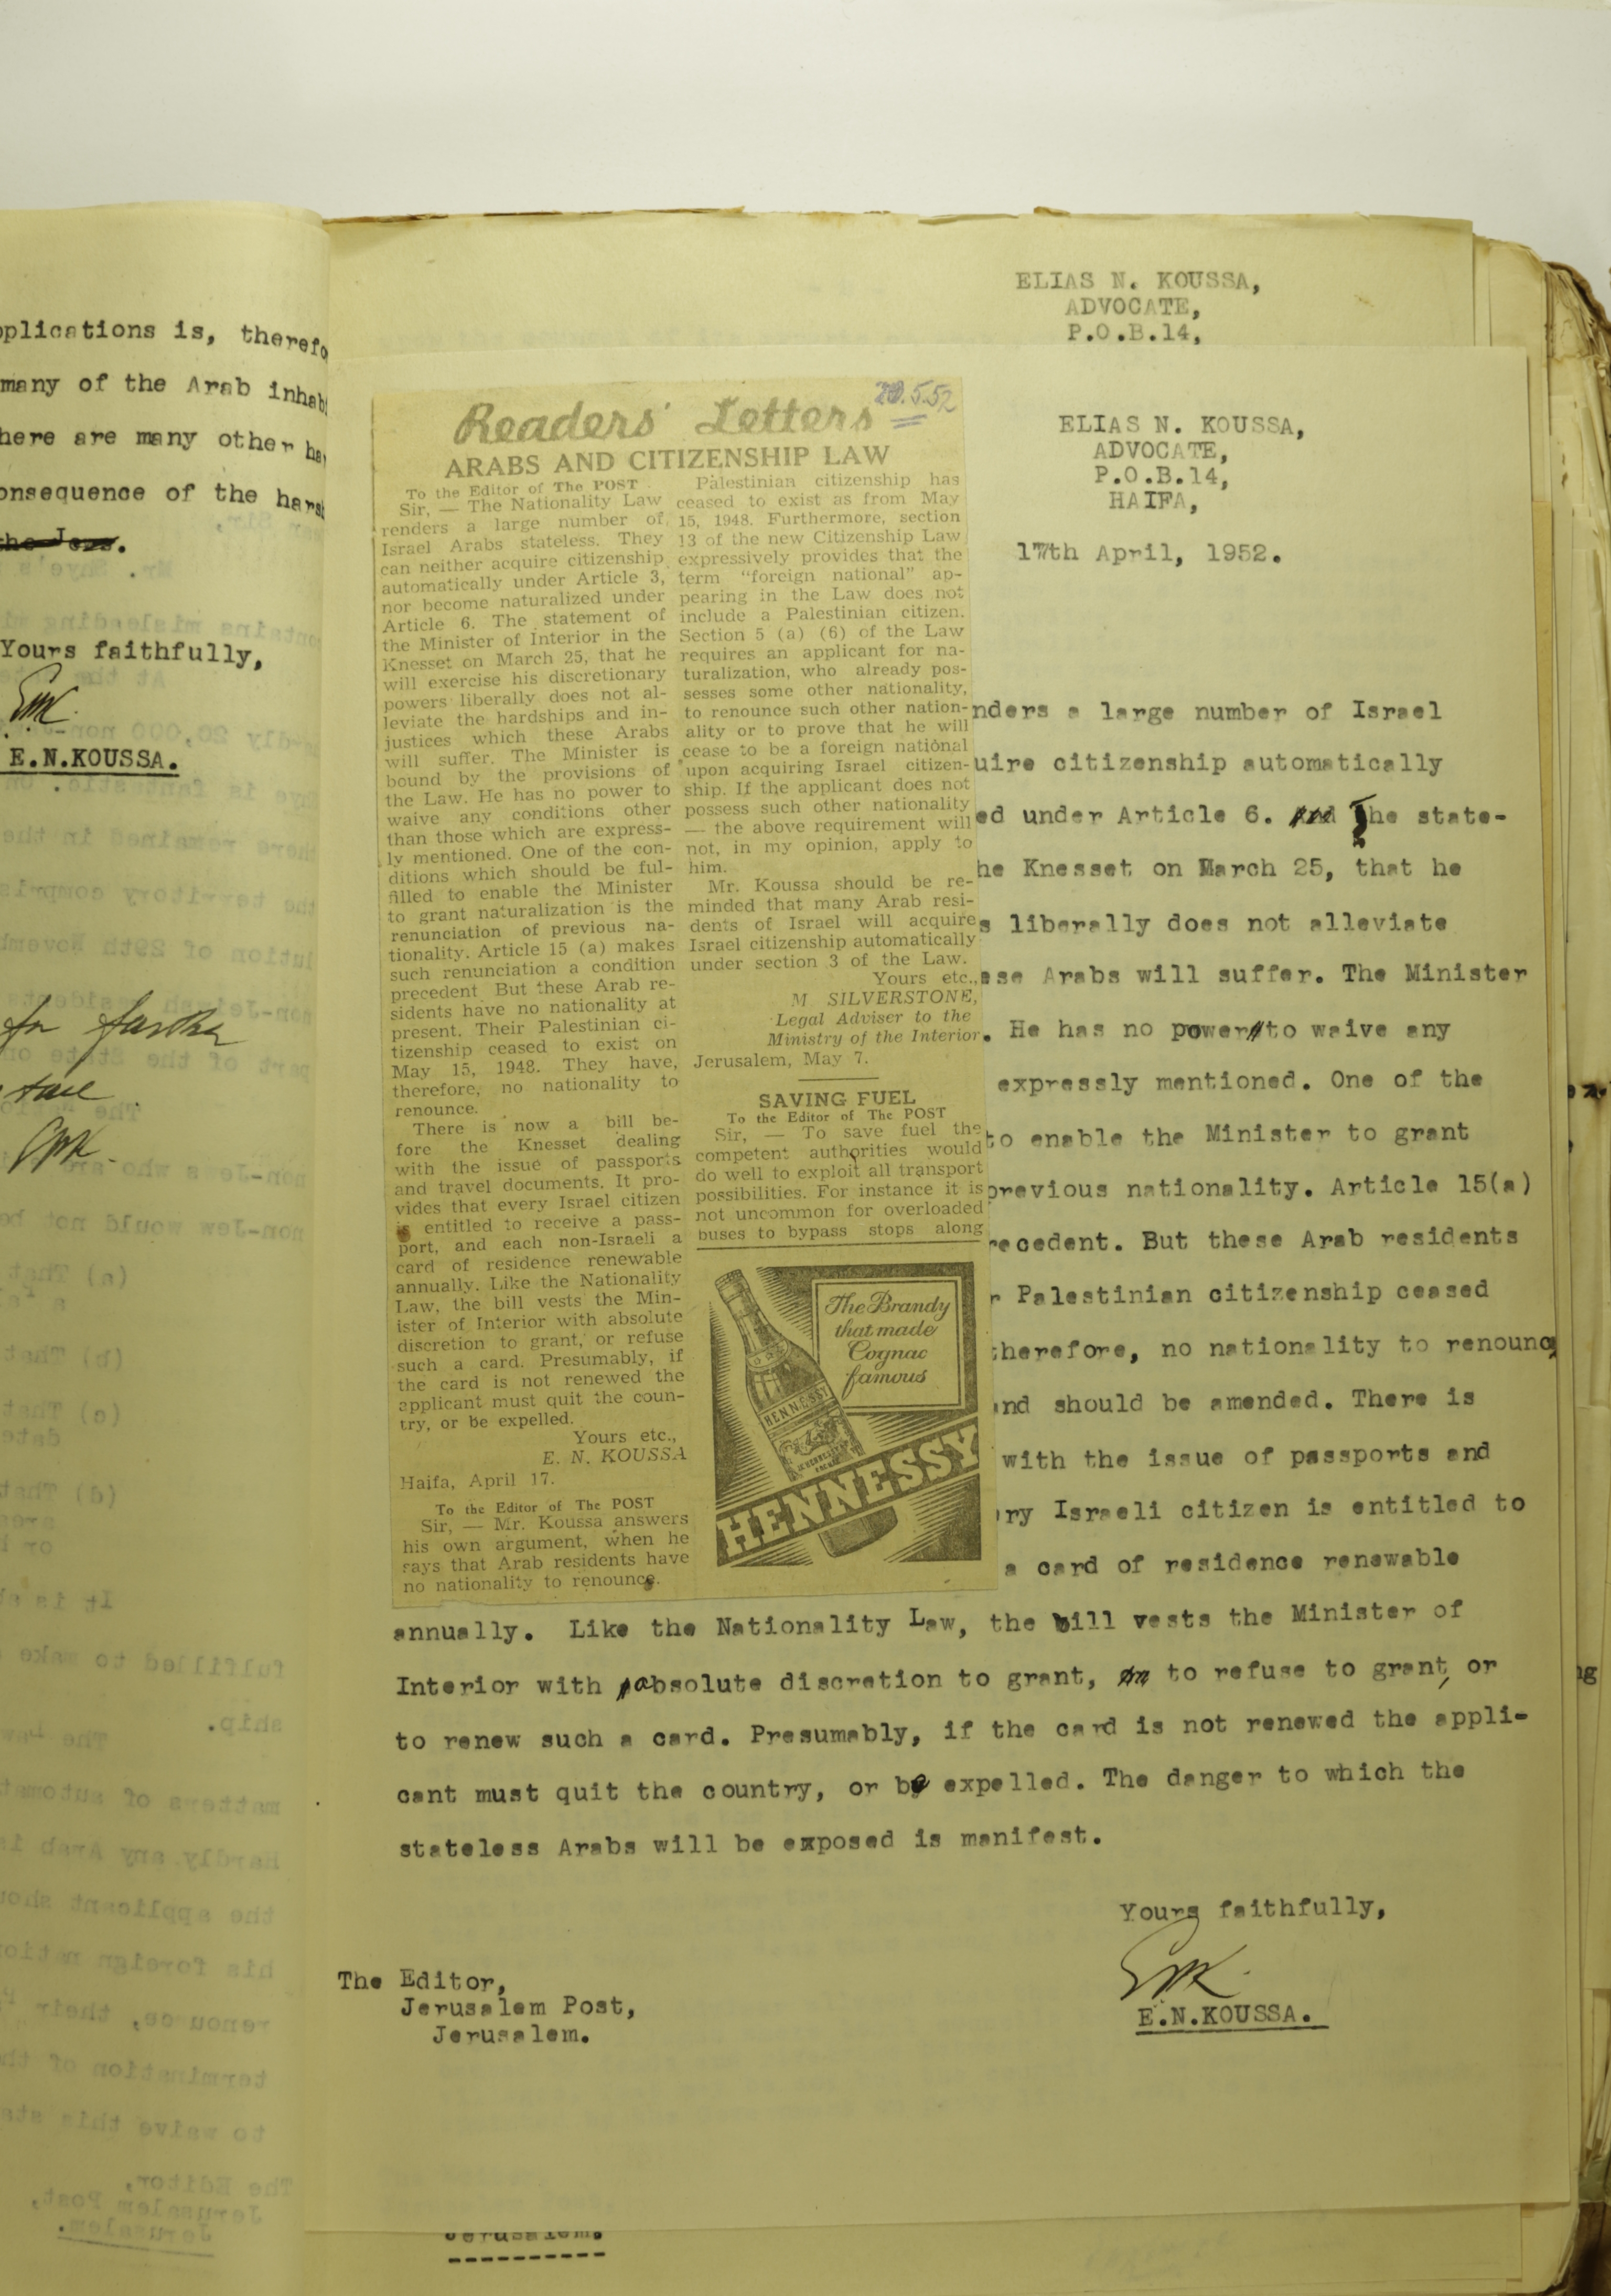 ELIAS N. KOUSSA,
ADVOCATE,
P.O.B.14,
many of the Arab
here are many other
onsequence of the
the Jews.
Yours faithfully,
E.N.KOUSSA.
for further
ELIAS N. KOUSSA,
ADVOCATE,
P.O.B.14,
HAIFA,
17th April, 1952.
Readers' Letters
.5.52
ARABS AND CITIZENSHIP LAW
To the Editor of The POST
Sir, — The Nationality Law
renders a large number of
Israel Arabs stateless. They
can neither acquire citizenship
automatically under Article 3,
nor become naturalized under
Article 6. The statement of
the Minister of Interior in the
Knesset on March 25, that he
will exercise his discretionary
powers liberally does not al-
leviate the hardships and in-
justices which these Arabs
will suffer. The Minister is
bound by the provisions of
the Law. He has no power to
waive any conditions other
than those which are express-
ly mentioned. One of the con-
ditions which should be ful-
filled to enable the Minister
to grant naturalization is the
renunciation of previous na-
tionality. Article 15 (a) makes
such renunciation a condition
precedent But these Arab re-
sidents have no nationality at
present. Their Palestinian ci-
tizenship ceased to exist on
May 15, 1948. They have,
therefore, no nationality to
renounce.
There is now a bill be-
fore the Knesset dealing
with the issue of passports
and travel documents. It pro-
vides that every Israel citizen
is entitled to receive a pass-
port, and each non-Israeli a
card of residence renewable
annually. Like the Nationality
Law, the bill vests the Min-
ister of Interior with absolute
discretion to grant, or refuse
such a card. Presumably, if
the card is not renewed the
applicant must quit the coun-
try, or be expelled.
Yours etc.,
E. N. KOUSSA
Haifa, April 17.
To the Editor of The POST
Sir, — Mr. Koussa answers
his own argument, when he
says that Arab residents have
no nationality to renounce.
Palestinian citizenship has
ceased to exist as from May
15, 1948. Furthermore, section
13 of the new Citizenship Law
expressively provides that the
term "foreign national" ap-
pearing in the Law does not
include a Palestinian citizen.
Section 5 (a) (6) of the Law
requires an applicant for na-
turalization, who already pos-
sesses some other nationality,
to renounce such other nation-
ality or to prove that he will
cease to be a foreign national
upon acquiring Israel citizen-
ship. If the applicant does not
possess such other nationality
— the above requirement will
not, in my opinion, apply to
him.
Mr. Koussa should be re-
minded that many Arab resi-
dents of Israel will acquire
Israel citizenship automatically
under section 3 of the Law.
Yours etc.,
M SILVERSTONE,
Legal Adviser to the
Ministry of the Interior
Jerusalem, May 7.
SAVING FUEL
To the Editor of The POST
Sir, — To save fuel the
competent authorities would
do well to exploit all transport
possibilities. For instance it is
not uncommon for overloaded
buses to bypass stops along
The Brandy
that made
Cognac
famous
HENNESSY
HENNESSY
nders a large number of Israel
uire citizenship automatically
ed under Article 6. The state-
he Knesset on March 25, that he
s liberally does not alleviate
ese Arabs will suffer. The Minister
. He has no power to waive any
expressly mentioned. One of the
to enable the Minister to grant
previous nationality. Article 15(a)
recedent. But these Arab residents
r Palestinian citizenship ceased
therefore, no nationality to renounc
and should be amended. There is
with the issue of passports and
ry Israeli citizen is entitled to
a card of residence renewable
annually. Like the Nationality Law, the bill vests the Minister of
Interior with absolute discretion to grant, to refuse to grant, or
to renew such a card. Presumably, if the card is not renewed the appli-
cant must quit the country, or be expelled. The danger to which the
stateless Arabs will be exposed is manifest.
Yours faithfully,
E.N.KOUSSA.
The Editor,
Jerusalem Post,
Jerusalem.
Jerusalem.